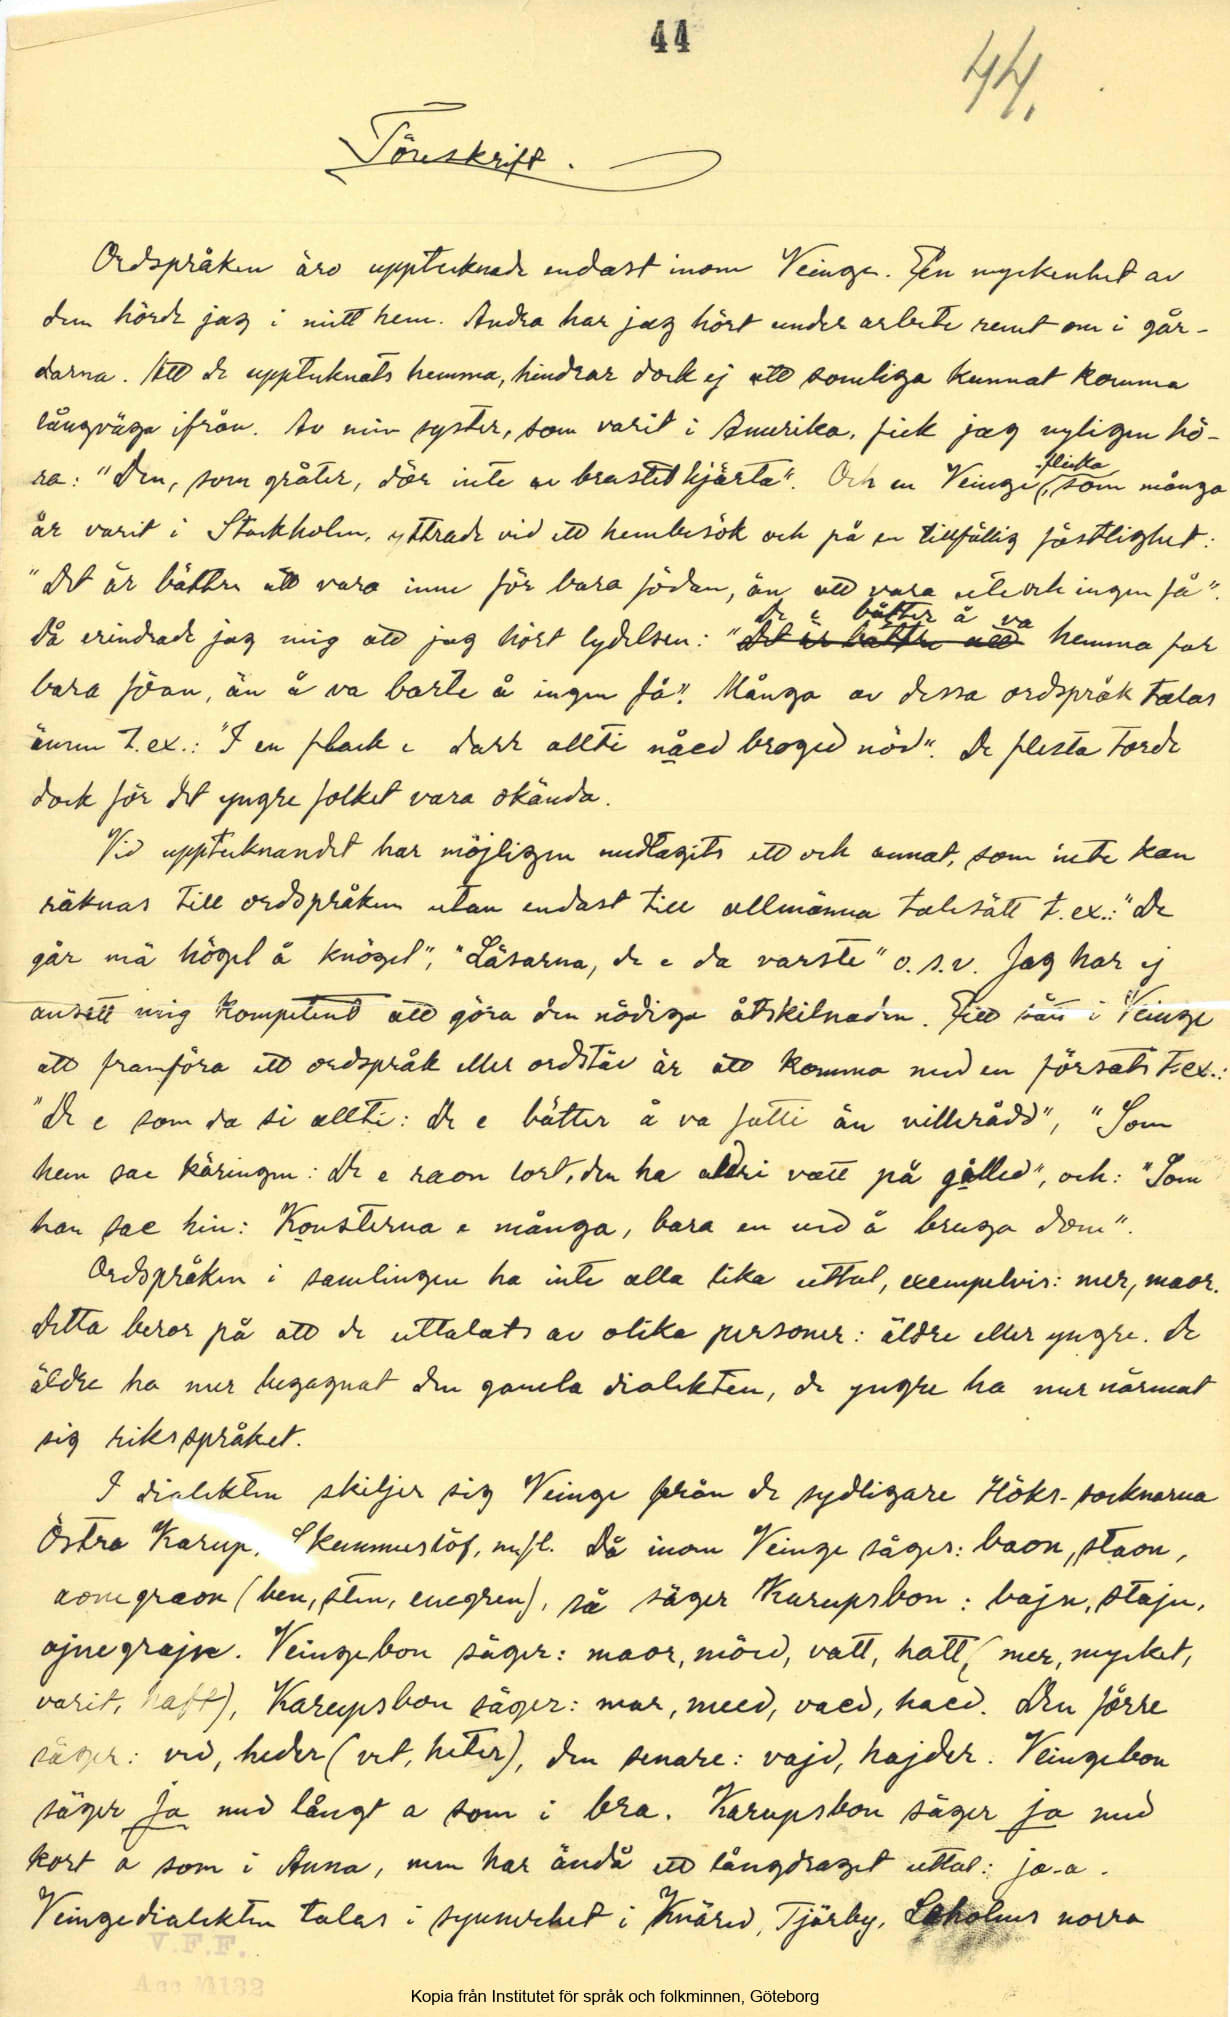 44
44.
Föreskrift.
Ordspråken äro upptecknade endast inom Veinge. En myckenhet av
dem hörde jag i mitt hem. Andra har jag hört under arbete remt om i går-
darna. Att de upptecknats hemma, hindrar dock ej att somliga kunnat komma
långväga ifrån. Av min syster, som varit i Amerika, fick jag nyligen hö-
ra: "Den, som gråter, dör inte av brustet hjärta". Och en Veinge flicka, som många
år varit i Stockholm, yttrade vid ett hembesök och på en tillfällig fästlighet:
"Det är bättre att vara inne för bara födan, än att vara ute och ingen få".
Då erindrade jag mig att jag hört lydelsen: "De e bätter å va hemma for
bara föan, än å va borte å ingen få". Många av dessa ordspråk talas
ännu t.ex.: "I en flack e darr allti nåed broged nöd". De flesta torde
dock för det yngre folket vara okända.
Vid upptecknandet har möjligen medtagits ett och annat, som inte kan
räknas till ordspråken utan endast till allmänna talesätt t.ex.: "De
går mä högel å knögel", "Läsarna, de e da varste" o.s.v. Jag har ej
ansett mig kompetent att göra den nödiga åtskilnaden. Ett sätt i Veinge
att framföra ett ordspråk eller ordstäv är att komma med en försats t.ex.:
"De e som da si allti: De e bätter å va fatti än villerådd", "Som
hem sae käringen: De e raon lort, den ha aldri vatt på gålled", och: "Som
han sae hin: Konsterna e många, bara en ved å bruga dom".
Ordspråken i samlingen ha inte alla lika uttal, exempelvis: mer, maor.
Detta beror på att de uttalats av olika personer: äldre eller yngre. De
äldre ha mer begagnat den gamla dialekten, de yngre ha mer närmat
sig riksspråket.
I dialekten skiljer sig Veinge från de sydligare Höks-socknarna
Östra Karup, Skummeslöf, m.fl. Då inom Veinge säges: baon, staon,
aonegraon (ben, sten, enegren), så säger Karupsbon: bajn, stajn,
ajnegrajn. Veingebon säger: maor, möed, vatt, hatt, (mer, mycket,
varit, haft), Karupsbon säger: mar, meed, vaed, haed. Den förre
säger: ved, heder (vet, heter), den senare: vajd, hajder. Veingebon
säger ja med långt a som i bra. Karupsbon säger ja med
kort a som i Anna, men har ändå ett långdraget uttal: ja-a.
Veingedialekten talas i synnerhet i Knäred, Tjärby, Laholms norra
V.F.F.
Kopia från Institutet för språk och folkminnen, Göteborg